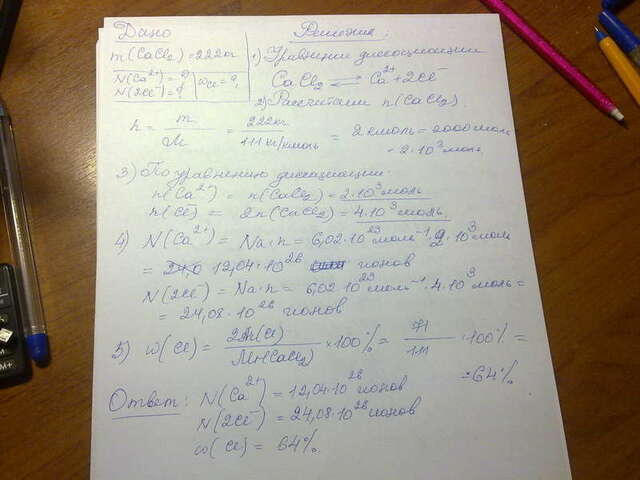 Дано
Решение:
m(CaCl₂)=222кг
N(Ca²⁺) = ?
N(2Cl⁻) = ?
ω Cl = ?
1) Уравнение диссоциации
CaCl₂ ⇄ Ca²⁺+2Cl⁻
2) Рассчитаем n(CaCl₂).
n = m/M = 222кг/111 кг/кмоль = 2 кмоль = 2000 моль
= 2·10³ моль
3) По уравнению диссоциации:
n(Ca²⁺) = n(CaCl₂) = 2·10³ моль
n(Cl⁻) = 2n(CaCl₂) = 4·10³ моль
4) N(Ca²⁺) = Na·n = 6,02·10²³ моль⁻¹·2·10³ моль
= 12,04·10²⁶ ионов
N(2Cl⁻) = Na·n = 6,02·10²³ моль⁻¹·4·10³ моль =
= 24,08·10²⁶ ионов
5) ω(Cl) = 2Ar(Cl)/Mr(CaCl₂) ×100% = 71/111 ·100% =
=64%
Ответ: N(Ca²⁺) = 12,04·10²⁶ ионов
N(2Cl⁻) = 24,08·10²⁶ ионов
ω(Cl) = 64%.